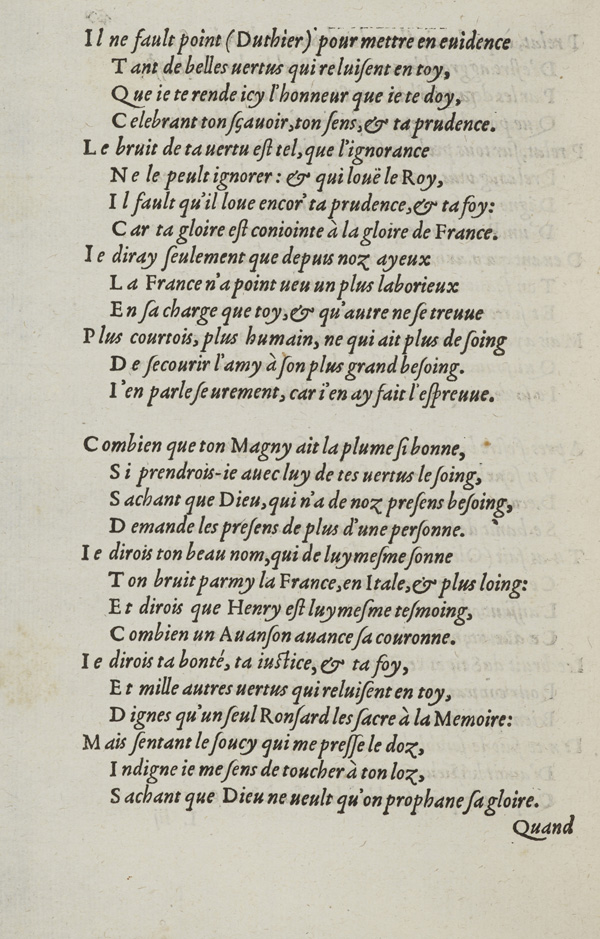 Il ne fault point (Duthier) pour mettre en euidence
Tant de belles uertus qui reluiſent en toy,
Que ie te rende icy l'honneur que ie te doy,
Celebrant ton ſçauoir, ton ſens, & ta prudence.
Le bruit de ta uertu eſt tel, que l'ignorance
Ne le peult ignorer: & qui louë le Roy,
Il fault qu'il loue encor' ta prudence, & ta foy:
Car ta gloire eſt coniointe à la gloire de France.
Ie diray ſeulement que depuis noz ayeux
La France n'a point ueu un plus laborieux
En ſa charge que toy, & qu'autre ne ſe treuue
Plus courtois, plus humain, ne qui ait plus de ſoing
De ſecourir l'amy à ſon plus grand beſoing.
I'en parle ſeurement, car i'en ay fait l'eſpreuue.
Combien que ton Magny ait la plume ſi bonne,
Si prendrois-ie auec luy de tes uertus le ſoing,
Sachant que Dieu, qui n'a de noz preſens beſoing,
Demande les preſens de plus d'une perſonne.
Ie dirois ton beau nom, qui de luy meſme ſonne
Ton bruit parmy la France, en Itale, & plus loing:
Et dirois que Henry eſt luy meſme teſmoing,
Combien un Auanſon auance ſa couronne.
Ie dirois ta bonté, ta iuſtice, & ta foy,
Et mille autres uertus qui reluiſent en toy,
Dignes qu'un ſeul Ronſard les ſacre à la Memoire:
Mais ſentant le ſoucy qui me preſſe le doz,
Indigne ie me ſens de toucher à ton loz,
Sachant que Dieu ne ueult qu'on prophane ſa gloire.
Quand